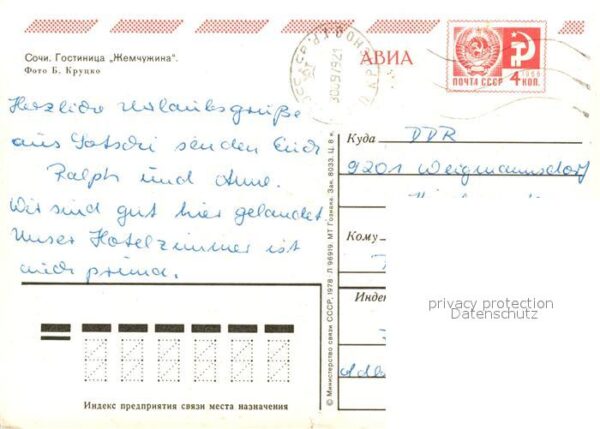 Сочи. Гостиница „Жемчужина".
Фото Б. Круцко
АВИА
ПОЧТА СССР 4 КОП.
1966
Herzliche Urlaubsgrüße
aus Sotschi senden Euch
Ralph und Anne.
Wir sind gut hier gelandet.
Unser Hotelzimmer ist
auch prima.
© Министерство связи СССР, 1978 Л 96919. МТ Гознака. Зак. 8033. Ц. 8 к.
Куда DDR
9201 Weigmannsdorf
Кому
Инде
privacy protection
Datenschutz
Индекс предприятия связи места назначения